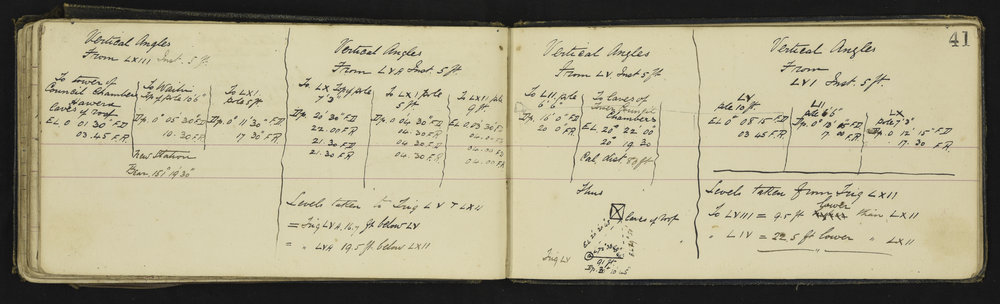 41
Vertical Angles
From LXIII Inst. 5 ft.
To tower of
Council Chambers
eaves of roof
EL 0° 01' 30" F.D
03.45 F.R.
To Wairn
Top of pole 10'6"
Dp. 0° 05' 30" F.D
10.30 F.R.
To LXI
pole 5 ft
Dp. 0° 11' 30" F.D
17 30" F.R.
New Station
Bear. 151° 19' 30"
Vertical Angles
From LVA Inst. 5 ft.
To LX Top of pole
7' 3"
Dp. 20' 30" F.D
22.00 F.R.
21.30 F.D
21.30 F.R.
To LXI pole
5 ft
Dp. 0° 04' 30" F.D
04.30 F.R.
04.30 F.D
04.30 F.R.
To LXII pole
9 ft
EL 0° 03' 30" F.D
04.00 F.R.
04.00 F.D
04.00 F.R.
Levels taken to Trig LV & LXII
= Trig LVA 16.7 ft. below LV
= " LVA 19.5 ft. below LXII
Vertical Angles
from LV. Inst 5 ft.
To LII pole
6' 6"
Dp. 16' 0" F.D
20 0" F.R.
To Eaves of
Chambers
EL. 20° 22' 00"
20° 19 30
Cal. dist 80 ft
Thus
Eaves of roof
Trig LV
91 ft
Vertical Angles
From
LVI Inst 5 ft.
LV
pole 10 ft
EL 0° 08' 15" F.D
03 45 F.R.
LII
pole 6' 6"
Dp. 0° 13' 15" F.D
7 00 F.R.
LX
pole 7' 3"
Dp. 0° 12' 15" F.D
17.30 F.R.
Levels taken from Trig LXII
lower
To LVIII = 9.5 ft. than LXII
" LIV = 22.5 ft lower " LXII